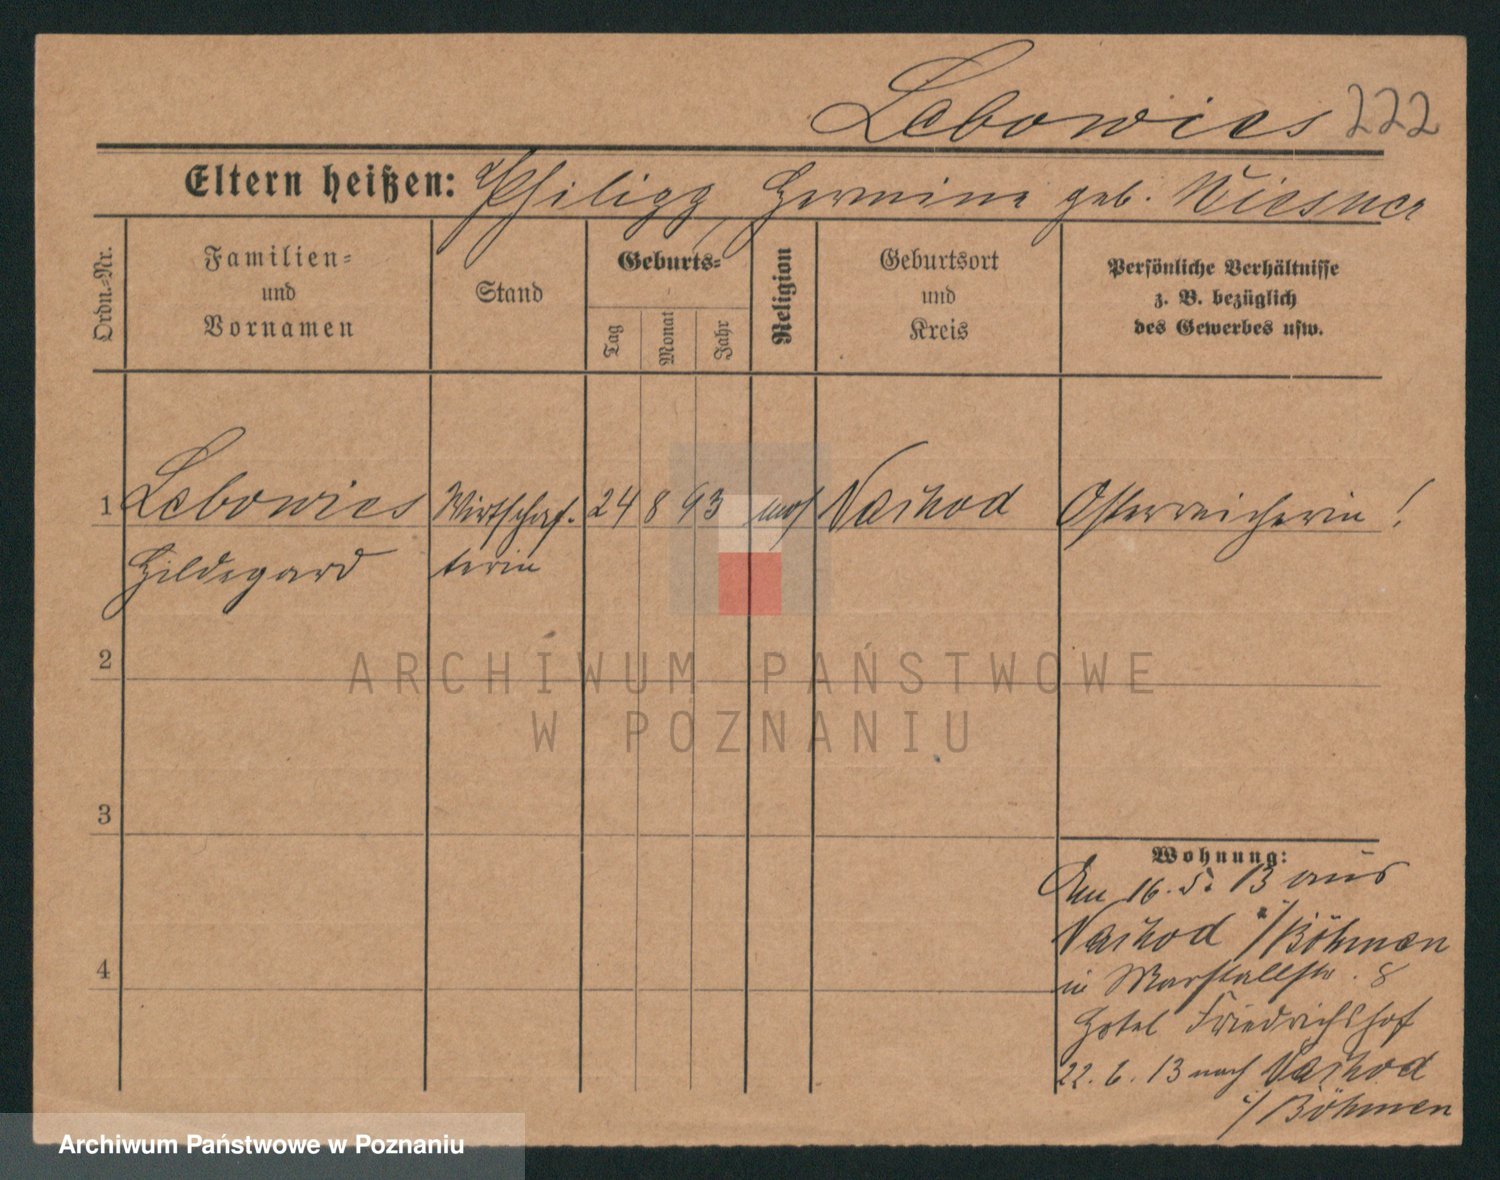 Lebowics 222
Eltern heißen: Philipp, Hermine geb. Wiesner
Ordn.-Nr.
Familien-
und
Vornamen
Stand
Geburts-
Tag
Monat
Jahr
Religion
Geburtsort
und
Kreis
Persönliche Verhältnisse
z. B. bezüglich
des Gewerbes usw.
1 Lebowics Wirtschaf- 24 8 93 mos Nachod Österreicherin!
Hildegard terin
2
3
4
Wohnung:
Am 16. 5. 13 aus
Nachod i/Böhmen
in Marstallstr. 8
Hotel Friedrichshof
22. 6. 13 nach Nachod
i/Böhmen
ARCHIWUM PAŃSTWOWE
W POZNANIU
Archiwum Państwowe w Poznaniu